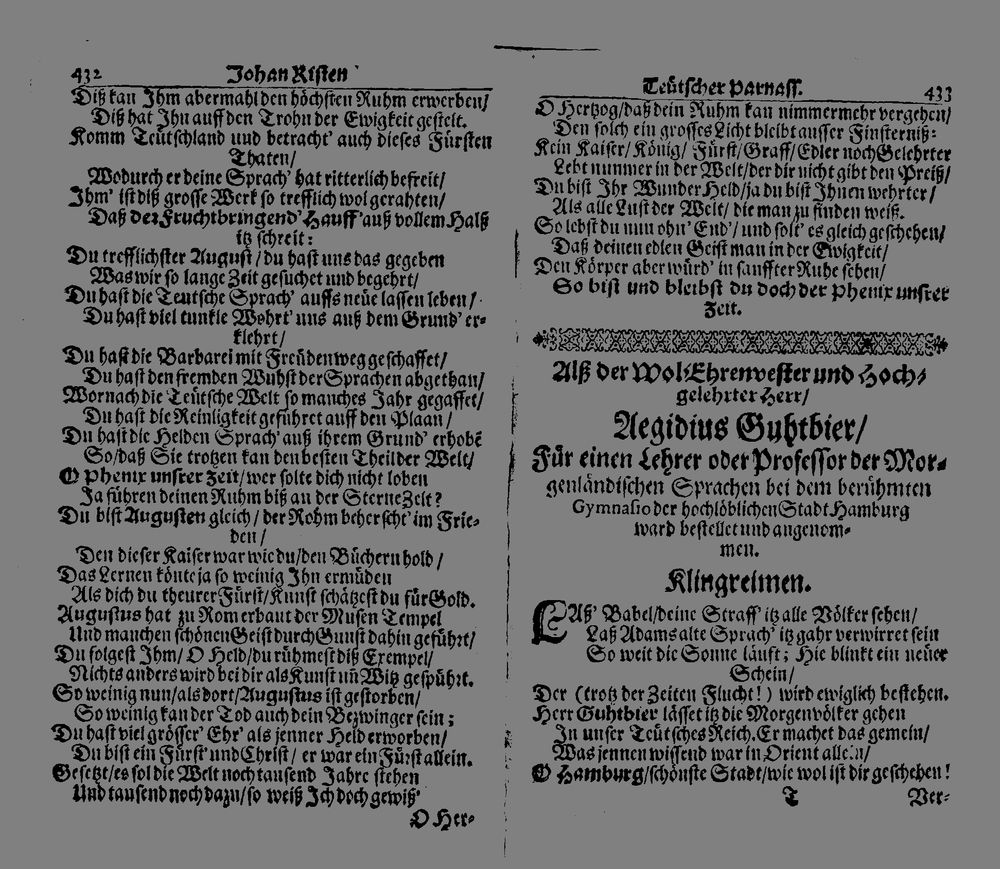 432 Johan Risten
Diß kan Ihm abermahl den höchsten Ruhm erwerben/
Diß hat Ihn auff den Trohn der Ewigkeit gestelt.
Komm Teütschland und betracht' auch dieses Fürsten
Thaten/
Wodurch er deine Sprach' hat ritterlich befreit/
Ihm' ist diß grosse Werk so trefflich wol gerahten/
Daß der Fruchtbringend' Hauff' auß vollem Halß
itz schreit:
Du trefflichster August/ du hast uns das gegeben
Was wir so lange Zeit gesuchet und begehrt/
Du hast die Teutsche Sprach' auffs neüe lassen leben/
Du hast viel tunkle Wohrt' uns auß dem Grund' er-
klehrt/
Du hast die Barbarei mit Freüden weg geschaffet/
Du hast den fremden Wuhst der Sprachen abgethan/
Wornach die Teütsche Welt so manches Jahr gegaffet/
Du hast die Reinligkeit geführet auff den Plaan/
Du hast die Helden Sprach' auß ihrem Grund' erhobē
So/daß Sie trotzen kan den besten Theil der Welt/
O Phenix unsrer Zeit/ wer solte dich nicht loben
Ja führen deinen Ruhm biß an der Sterne Zelt?
Du bist Augusten gleich/ der Rohm beherscht' im Frie-
den/
Den dieser Kaiser war wie du/den Büchern hold/
Das Lernen könte ja so weinig Ihn ermüden
Als dich du theurer Fürst/Kunst schätzest du für Gold.
Augustus hat zu Rom erbaut der Musen Tempel
Und manchen schönen Geist durch Gunst dahin geführt/
Du folgest Ihm/ O Held/du rühmest diß Exempel/
Nichts anders wird bei dir als Kunst uñ Witz gespührt.
So weinig nun/als dort/Augustus ist gestorben/
So weinig kan der Tod auch dein Bezwinger sein;
Du hast viel grösser' Ehr' als jenner Held erworben/
Du bist ein Fürst' und Christ/ er war ein Fürst allein.
Gesetzt/es sol die Welt noch tausend Jahre stehen
Und tausend noch dazu/so weiß Ich doch gewiß'
O Her-
Teütscher Parnass. 433
O Hertzog/daß dein Ruhm kan nimmermehr vergehen/
Den solch ein grosses Licht bleibt ausser Finsterniß:
Kein Kaiser/ König/ Fürst/ Graff/ Edler noch Gelehrter
Lebt nummer in der Welt/der dir nicht gibt den Preiß/
Du bist Ihr Wunder Held/ja du bist Ihnen wehrter/
Als alle Lust der Welt/ die man zu finden weiß.
So lebst du nun ohn' End'/ und solt' es gleich geschehen/
Daß deinen edlen Geist man in der Ewigkeit/
Den Körper aber würd' in sanffter Ruhe sehen/
So bist und bleibst du doch der Phenix unsrer
Zeit.
Alß der Wol Ehrenvester und Hoch-
gelehrter Herr/
Aegidius Guhtbier/
Für einen Lehrer oder Professor der Mor-
genländischen Sprachen bei dem berühmten
Gymnasio der hochlöblichen Stadt Hamburg
ward bestellet und angenom-
men.
Klingreimen.
LAß' Babel/deine Straff' itz alle Völker sehen/
Laß Adams alte Sprach' itz gahr verwirret sein
So weit die Sonne läuft; Hie blinkt ein neüer
Schein/
Der (trotz der Zeiten Flucht!) wird ewiglich bestehen.
Herr Guhtbier lässet itz die Morgenvölker gehen
In unser Teütsches Reich. Er machet das gemein/
Was jennen wissend war in Orient allein/
O Hamburg/schönste Stadt/wie wol ist dir geschehen!
T Ver-